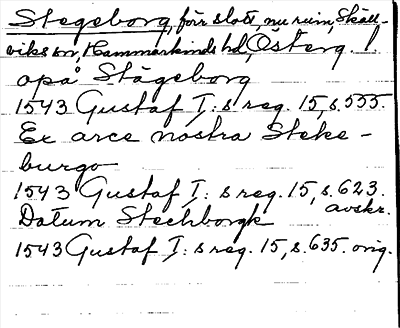 Stegeborg, förr slott, nu ruin, Skäll-
viks sn, Hammarkinds hd, Österg. 1.
opå Stägeborg
1543 Gustaf I:s reg. 15, s. 555.
Ex arce nostra Steke-
burgo
1543 Gustaf I:s reg. 15, s. 623.
avskr.
Datum Stechborgk
1543 Gustaf I:s reg. 15, s. 635. orig.